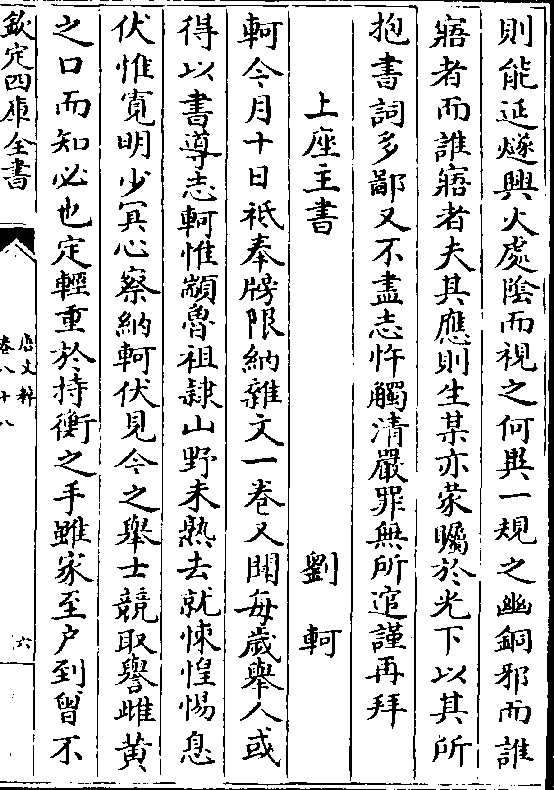 則能延燧興火處陰而視之何與一規之幽銅邪而誰
寤者而誰寤者夫其應則生某亦蒙矚於光下以其所
抱書詞多鄙又不盡志忤觸清嚴罪無所逭謹再拜
上座主書 劉軻
軻今月十日祗奉牓限納雜文一卷又聞每歲舉人或
得以書導志軻惟顓魯祖隸山野未熟去就悚惶惕息
伏惟寛明少冥心察納軻伏見今之舉士競取譽雌黄
之口而知必也定輕重於持衡之手雖家至户到曾不
欽定四庫全書
唐文粹
卷八十八
六